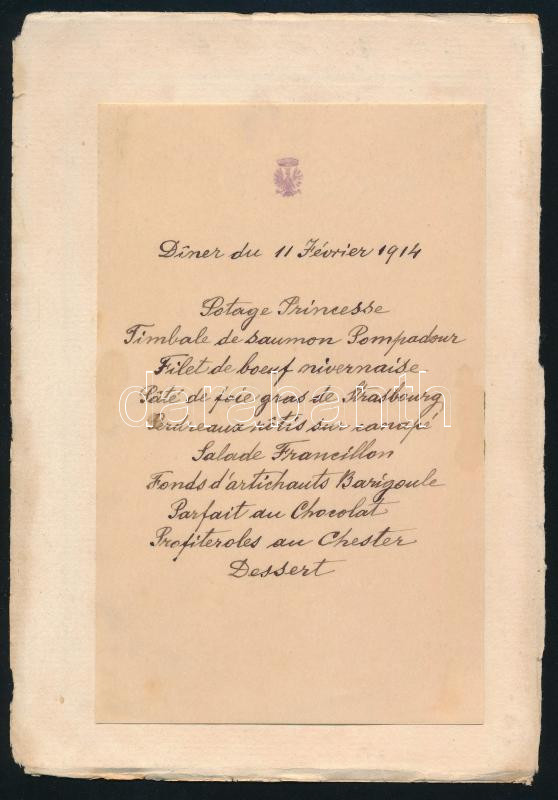 Dîner du 11 Février 1914
Potage Princesse
Timbale de saumon Pompadour
Filet de boeuf nivernaise
Pâté de foie gras de Strasbourg
Perdreaux rôtis sur canapé
Salade Francillon
Fonds d'artichauts Barigoule
Parfait au Chocolat
Profiteroles au Chester
Dessert
darabanth